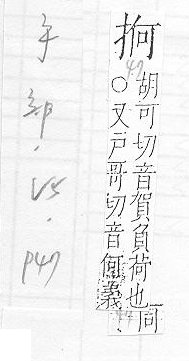 抲
胡可切音賀負荷也同
○又戶哥切音何義
手部.15.
P47